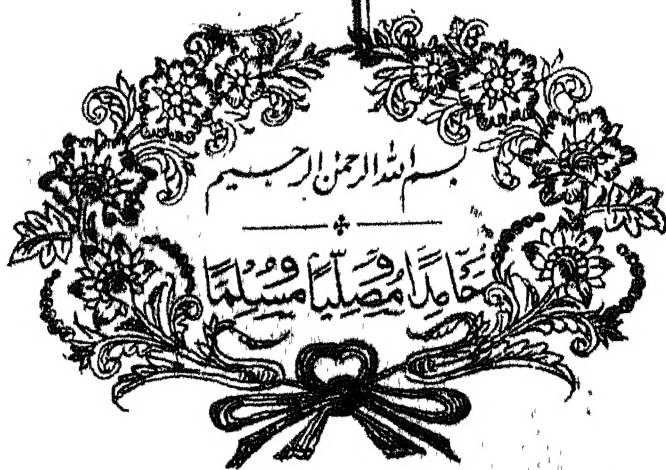 بسم اللہ الرحمٰن الرحیم
حَامِدًا وَّ مُصَلِّیًا وَّ مُسَلِّمًا